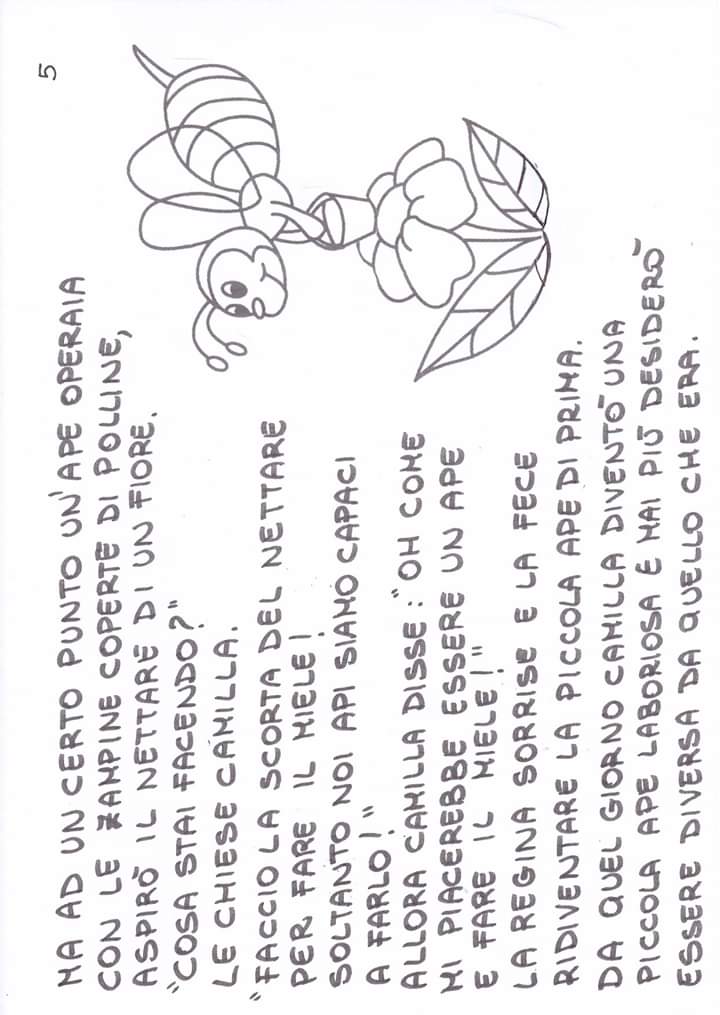 MA AD UN CERTO PUNTO UN'APE OPERAIA
CON LE ZAMPINE COPERTE DI POLLINE,
ASPIRÒ IL NETTARE DI UN FIORE.
"COSA STAI FACENDO?"
LE CHIESE CAMILLA.
"FACCIO LA SCORTA DEL NETTARE
PER FARE IL MIELE!
SOLTANTO NOI API SIAMO CAPACI
A FARLO!"
ALLORA CAMILLA DISSE: "OH COME
MI PIACEREBBE ESSERE UN APE
E FARE IL MIELE!"
LA REGINA SORRISE E LA FECE
RIDIVENTARE LA PICCOLA APE DI PRIMA.
DA QUEL GIORNO CAMILLA DIVENTÒ UNA
PICCOLA APE LABORIOSA E MAI PIÙ DESIDERÒ
ESSERE DIVERSA DA QUELLO CHE ERA.
5